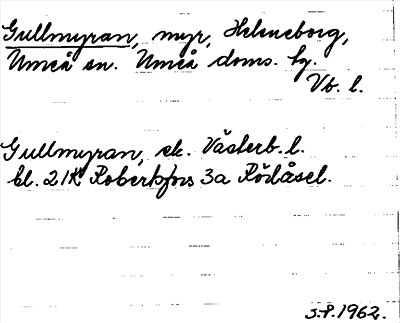 Gullmyran, myr, Heleneborg,
Umeå sn. Umeå doms. hg.
Vb. l.
Gullmyran, ek. Västerb. l.
bl. 21K Robertsfors 3a Rödåsel.
1962.